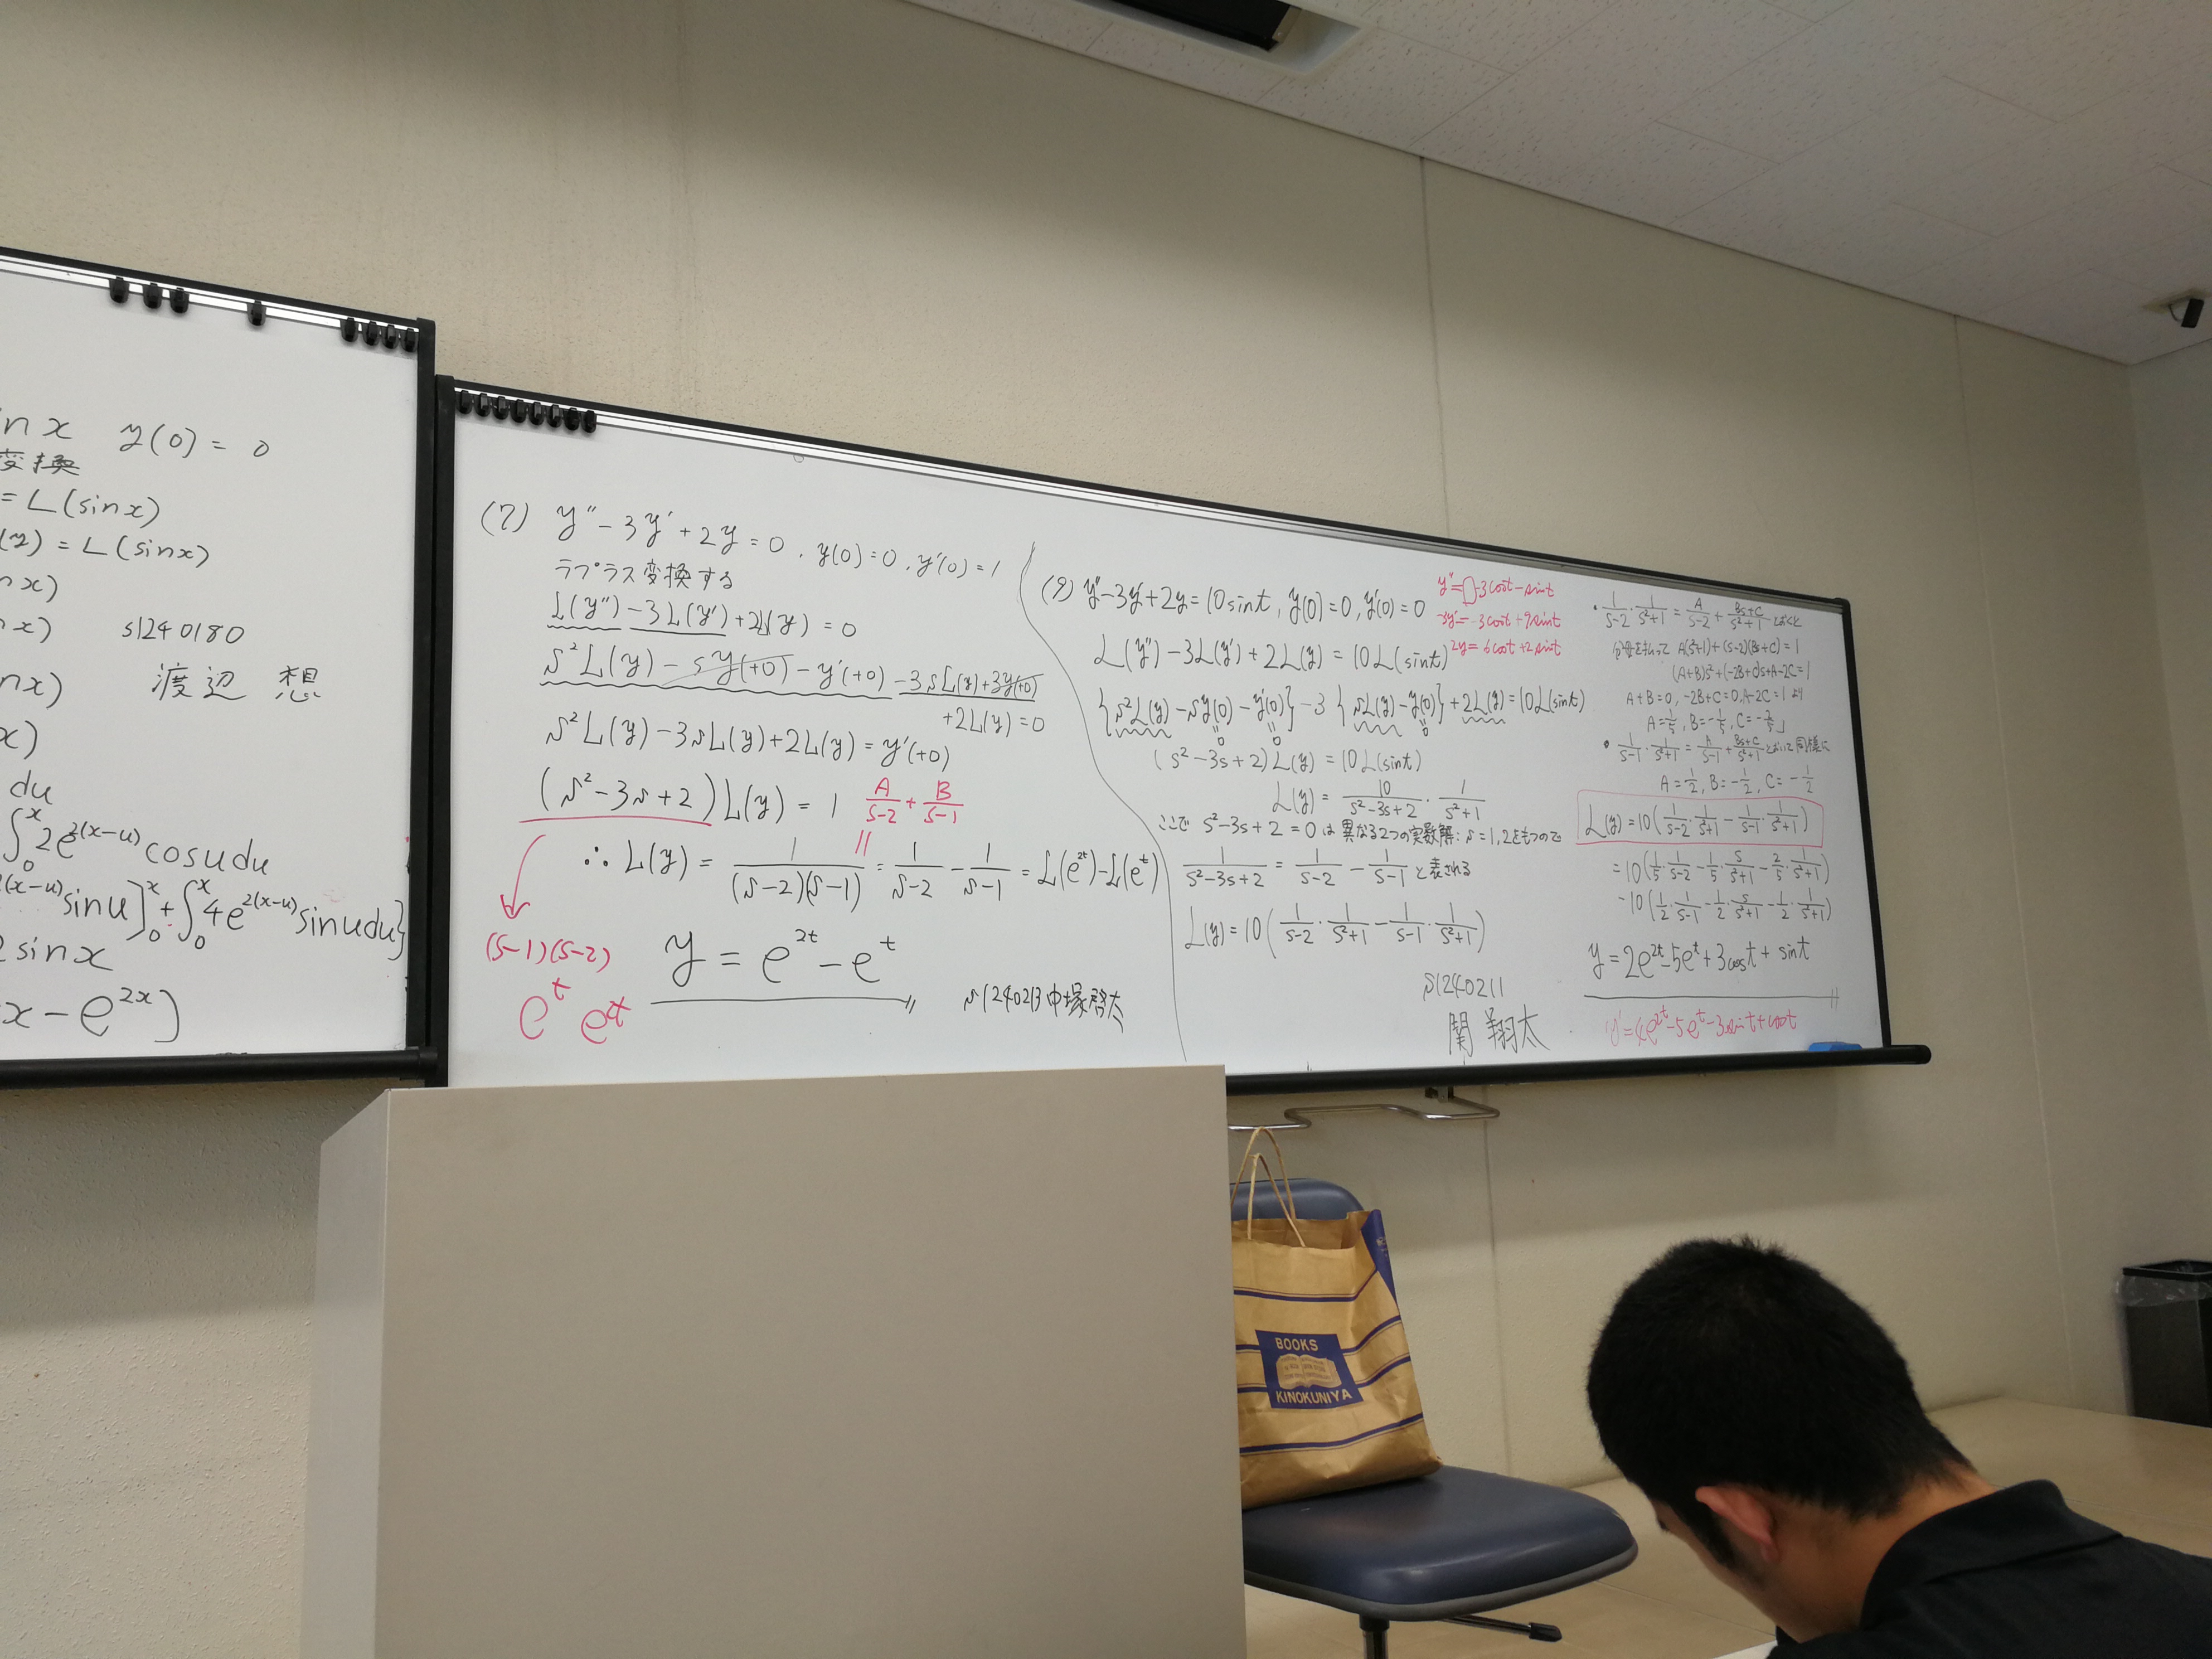 in x y(0) = 0
変換
= L(sin x)
(y) = L(sin x)
n x)
n x) s1240180
nx) 渡辺 想
x)
du
∫₀ˣ 2e^{2(x-u)} cosu du
2(x-u) sinu]₀ˣ + ∫₀ˣ 4e^{2(x-u)} sinu du}
2 sin x
x - e^{2x})
(7) y'' - 3y' + 2y = 0 , y(0) = 0 , y'(0) = 1
ラプラス変換する
L(y'') - 3L(y') + 2L(y) = 0
s²L(y) - sy(+0) - y'(+0) - 3sL(y) + 3y(+0)
+2L(y) = 0
s²L(y) - 3sL(y) + 2L(y) = y'(+0)
(s² - 3s + 2)L(y) = 1 A/(s-2) + B/(s-1)
∴ L(y) = 1/((s-2)(s-1)) = 1/(s-2) - 1/(s-1) = L(e^{2t}) - L(e^t)
(s-1)(s-2)
y = e^{2t} - e^t
e^t e^{2t}
s1240213 中塚啓太
(9) y'' - 3y' + 2y = 10 sint, y(0) = 0, y'(0) = 0
y'' = -3cost - sint
-3y' = -3cost + 9sint
2y = 6cost + 2sint
L(y'') - 3L(y') + 2L(y) = 10L(sint)
{s²L(y) - sy(0) - y'(0)} - 3{sL(y) - y(0)} + 2L(y) = 10L(sint)
0 0 0
(s² - 3s + 2)L(y) = 10L(sint)
L(y) = 10/(s² - 3s + 2) · 1/(s² + 1)
ここで s² - 3s + 2 = 0 は 異なる2つの実数解: s = 1, 2をもつので
1/(s² - 3s + 2) = 1/(s-2) - 1/(s-1) と表される
L(y) = 10(1/(s-2) · 1/(s²+1) - 1/(s-1) · 1/(s²+1))
s1240211
関 翔太
・1/(s-2) · 1/(s²+1) = A/(s-2) + (Bs+C)/(s²+1) とおくと
分母をはらって A(s²+1) + (s-2)(Bs+C) = 1
(A+B)s² + (-2B+C)s + A - 2C = 1
A+B = 0, -2B+C = 0, A-2C = 1 より
A = 1/5, B = -1/5, C = -2/5
・1/(s-1) · 1/(s²+1) = A/(s-1) + (Bs+C)/(s²+1) とおいて 同様に
A = 1/2, B = -1/2, C = -1/2
L(y) = 10(1/(s-2) · 1/(s²+1) - 1/(s-1) · 1/(s²+1))
= 10(1/5 · 1/(s-2) - 1/5 · s/(s²+1) - 2/5 · 1/(s²+1))
- 10(1/2 · 1/(s-1) - 1/2 · s/(s²+1) - 1/2 · 1/(s²+1))
y = 2e^{2t} - 5e^t + 3cost + sint
y' = 4e^{2t} - 5e^t - 3sint + cost
BOOKS
KINOKUNIYA